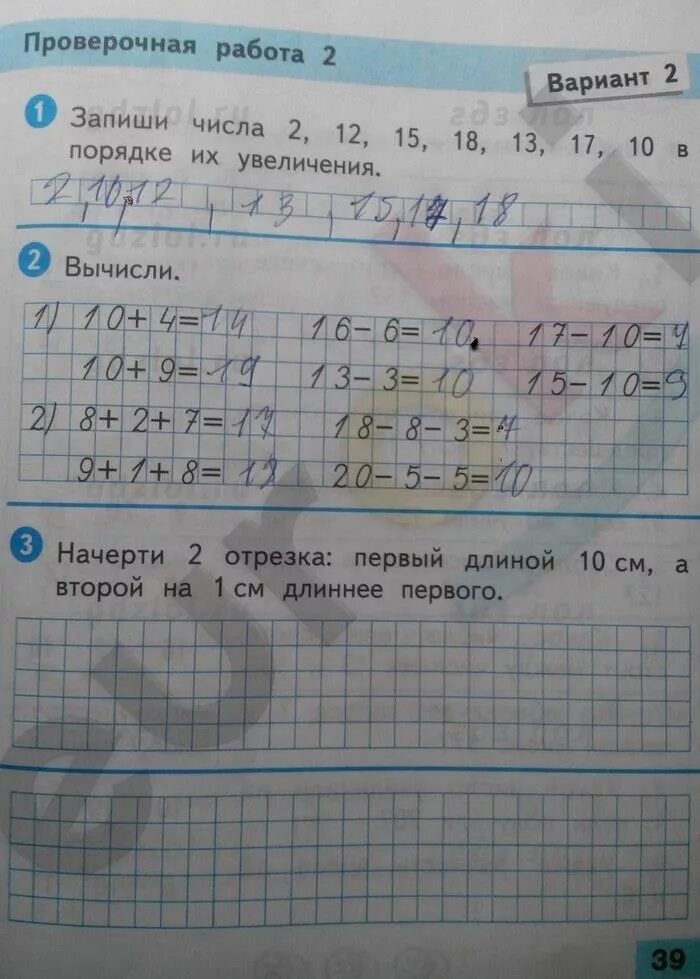 Проверочная работа 2
Вариант 2
1 Запиши числа 2, 12, 15, 18, 13, 17, 10 в
порядке их увеличения.
2, 10, 12, 13, 15, 17, 18
2 Вычисли.
1) 10+4=14 16-6=10 17-10=7
10+9=19 13-3=10 15-10=
2) 8+2+7=17 18-8-3=7
9+1+8= 20-5-5=10
3 Начерти 2 отрезка: первый длиной 10 см, а
второй на 1 см длиннее первого.
39